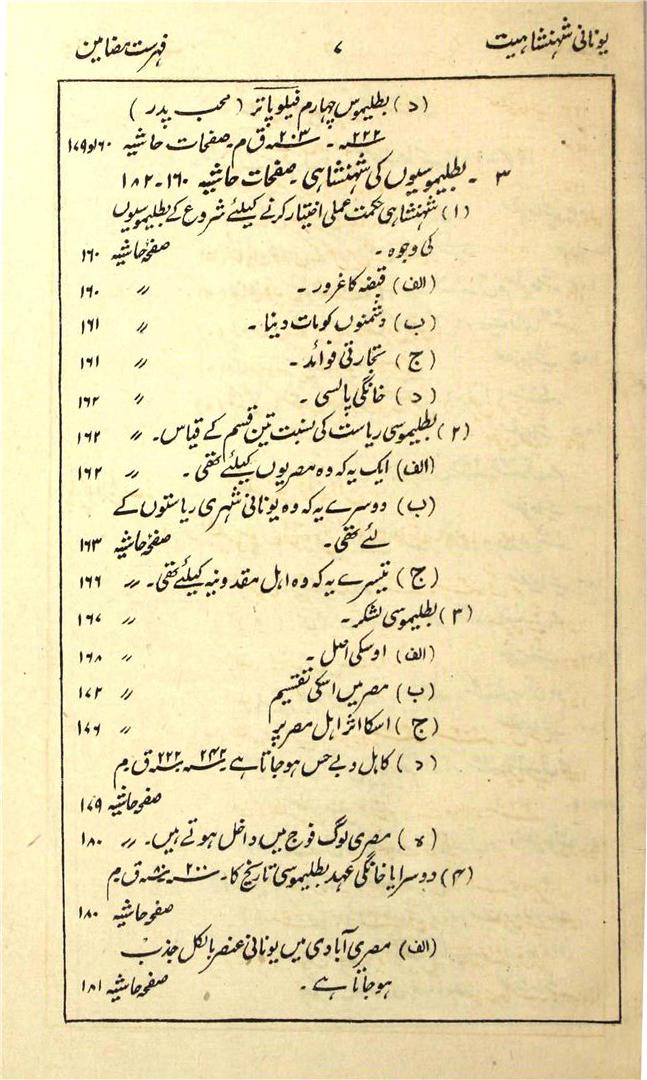 یونانی شہنشاہیت ۷ فہرست مضامین
(د) بطلیموس چہارم فیلوپاتر (محب پدر)
۲۲۲ ؁ - ۲۰۳ ؁ ق م - صفحات حاشیہ ۱۶۰ و ۱۷۹
۳ - بطلیموسیوں کی شہنشاہی - صفحات حاشیہ ۱۶۰ - ۱۸۲
(۱) شہنشاہی حکمت عملی اختیار کرنے کیلئے شروع کے بطلیموسیوں
کی وجوہ - صفحۂ حاشیہ ۱۶۰
(الف) قبضہ کا غرور - // ۱۶۰
(ب) دشمنوں کو مات دینا - // ۱۶۱
(ج) تجارتی فوائد - // ۱۶۱
(د) خانگی پالسی - // ۱۶۲
(۲) بطلیموسی ریاست کی نسبت تین قسم کے قیاس - // ۱۶۲
(الف) ایک یہ کہ وہ مصریوں کیلئے تھی - // ۱۶۲
(ب) دوسرے یہ کہ وہ یونانی شہری ریاستوں کے
لئے تھی - صفحۂ حاشیہ ۱۶۳
(ج) تیسرے یہ کہ وہ اہل مقدونیہ کیلئے تھی - // ۱۶۶
(۳) بطلیموسی لشکر - // ۱۶۷
(الف) اوسکی اصل - // ۱۶۸
(ب) مصر میں اسکی تقسیم // ۱۷۲
(ج) اسکا اثر اہل مصر پر // ۱۷۶
(د) کاہل و بے حس ہوجاتا ہے ۲۴۲ ؁ - ۲۲۲ ؁ ق م
صفحۂ حاشیہ ۱۷۹
(ہ) مصری لوگ فوج میں داخل ہوتے ہیں - // ۱۸۰
(۴) دوسرا یا خانگی عہد بطلیموسی تاریخ کا - ۲۰۰ ؁ - ۸۰ ؁ ق م
صفحۂ حاشیہ ۱۸۰
(الف) مصری آبادی میں یونانی عنصر بالکل جذب
ہوجاتا ہے - صفحۂ حاشیہ ۱۸۱